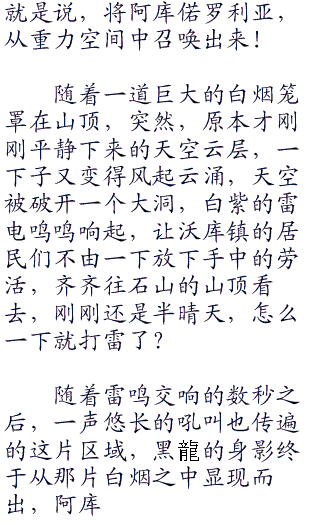 就是说，将阿库偌罗利亚，
从重力空间中召唤出来！
随着一道巨大的白烟笼
罩在山顶，突然，原本才刚
刚平静下来的天空云层，一
下子又变得风起云涌，天空
被破开一个大洞，白紫的雷
电鸣鸣响起，让沃库镇的居
民们不由一下放下手中的劳
活，齐齐往石山的山顶看
去，刚刚还是半晴天，怎么
一下就打雷了？
随着雷鸣交响的数秒之
后，一声悠长的吼叫也传遍
的这片区域，黑龍的身影终
于从那片白烟之中显现而
出，阿库